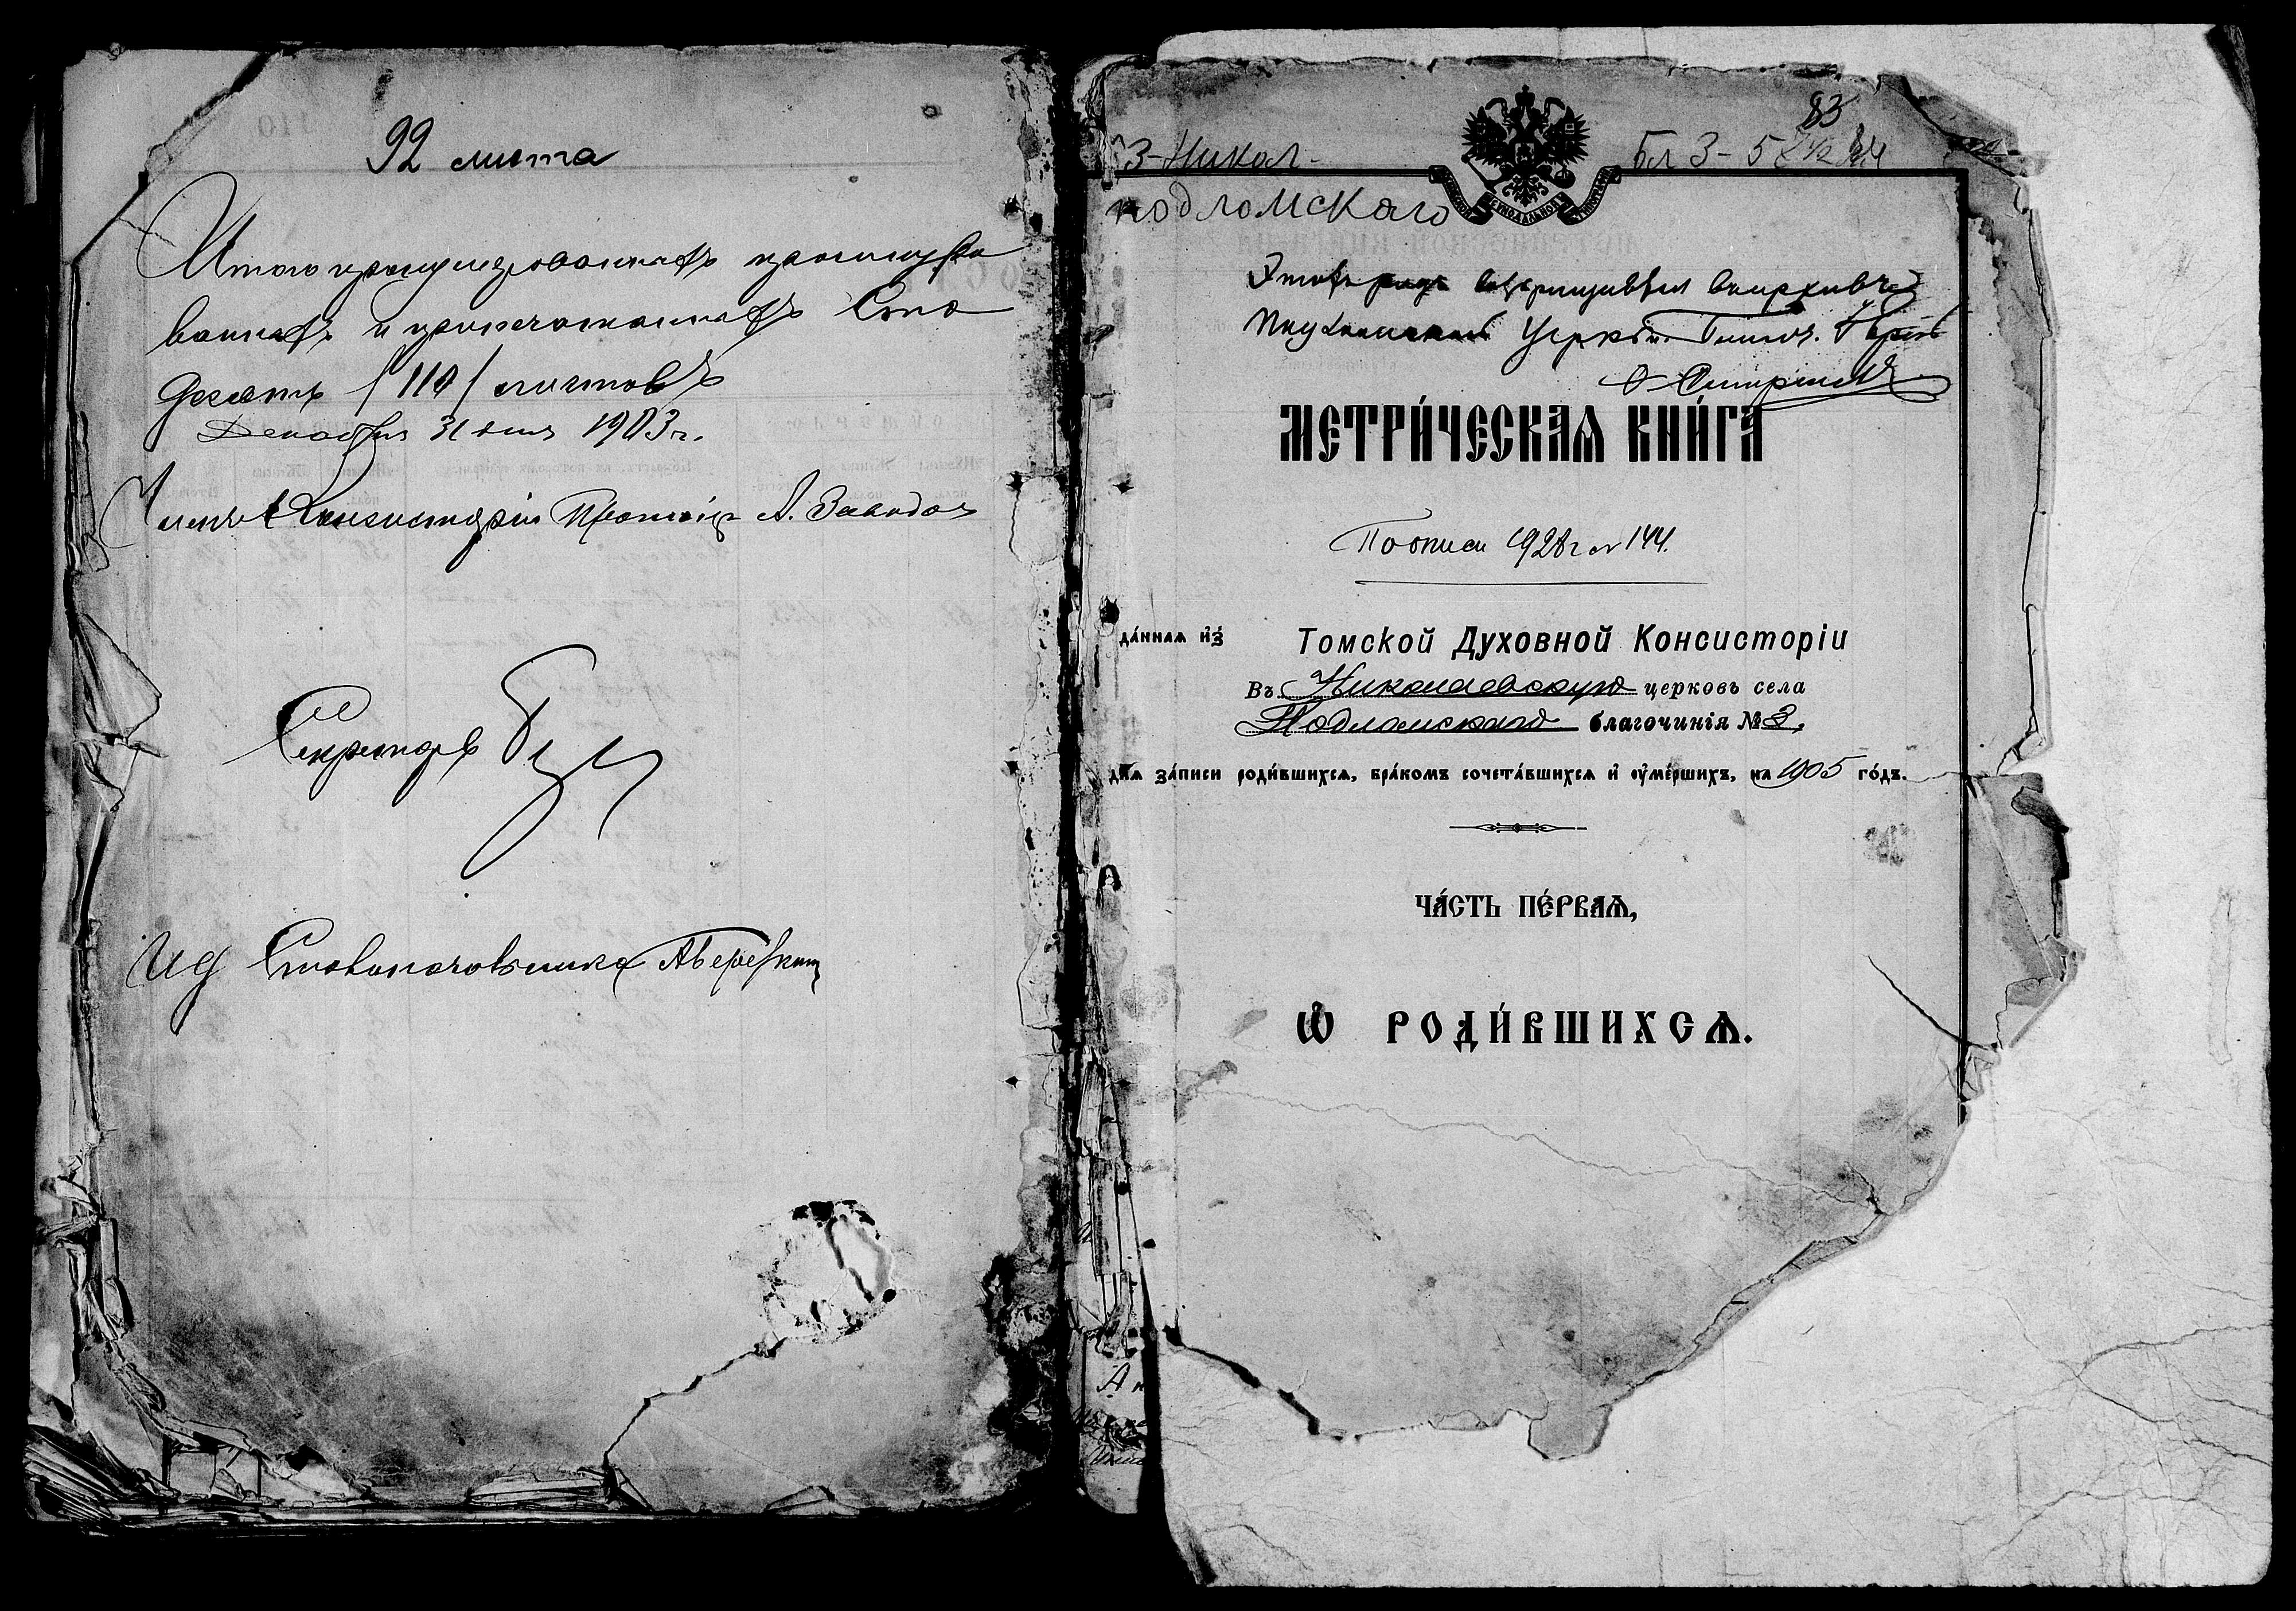 92 листа
Итого пронумерованныхъ прошнуро
ванныхъ и припечатанныхъ Сто
десять /110/ листовъ
Декабря 31 дня 1903 г.
Членъ Консисторіи Протоіер А. Заводов
Секретарь
ИД Столоначальника Аверекин
3-Никол-
Бл 3-5
83
подломскаго
Церкви
МЕТРИ́ЧЕСКАѦ КНИ́ГА
По описи 1928 г № 144.
да́ннаѧ и҆з̾
Томской Духовной Консисторіи
Въ Николаевскую церковь села
Подломскаго благочинія № 3,
длѧ за́писи роди́вшихсѧ, бра́комъ сочета́вшихсѧ и҆ ᲂу҆ме́ршихъ, на 1905 го́дъ.
ЧА́СТЬ ПЕ́РВАѦ,
Ѡ҆ РОДИ́ВШИХСѦ.